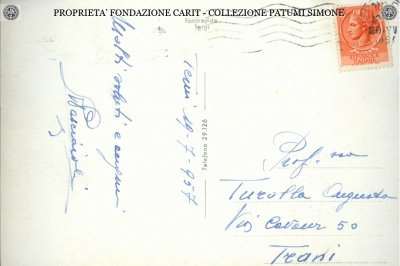 PROPRIETA' FONDAZIONE CARIT - COLLEZIONE PATUMI SIMONE
Fotorapida
Terni
Molti saluti e auguri
Terni 19-7-957
Telefono 29.126
Prof.
Turolla Augusto
Via Cavour 50
Trani